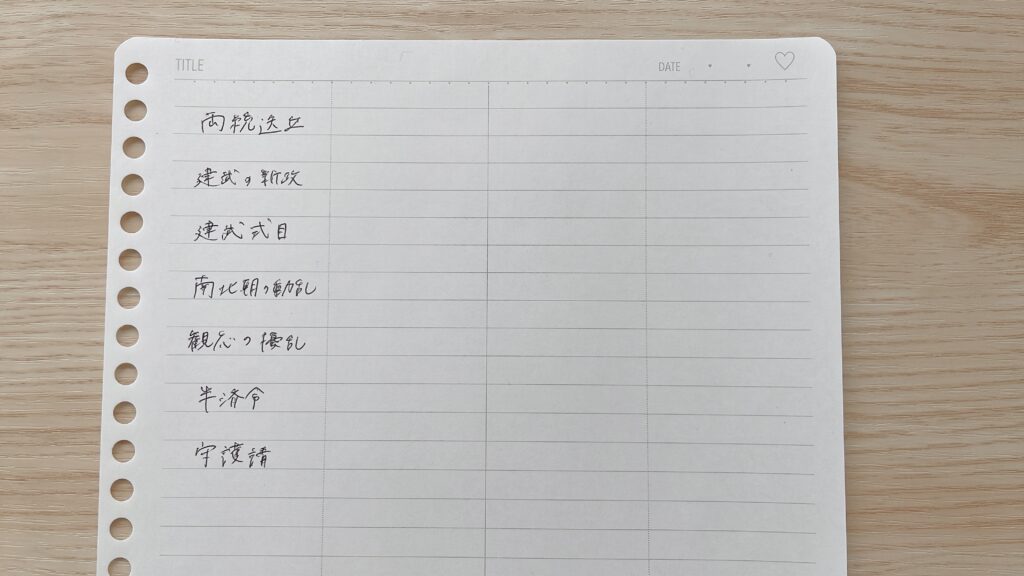 TITLE
DATE
両統迭立
建武の新政
建武式目
南北朝の動乱
観応の擾乱
半済令
守護請